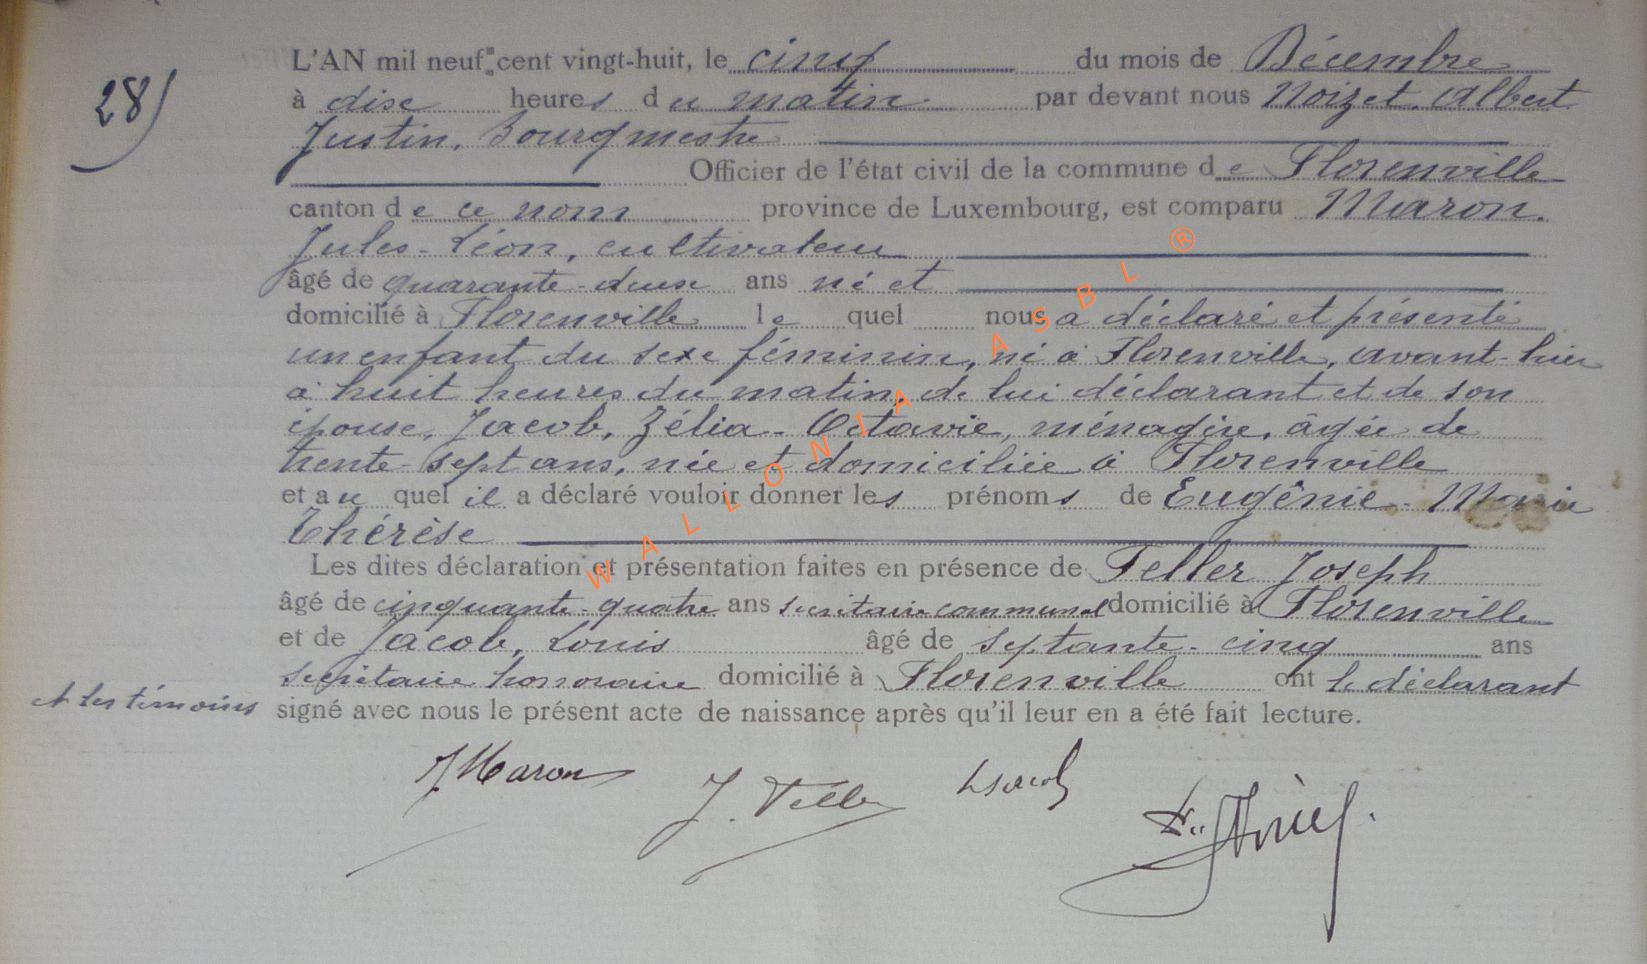 28)
L'AN mil neuf cent vingt-huit, le cinq du mois de Décembre
à dix heures du matin par devant nous Noizet Albert
Justin, Bourgmestre
Officier de l'état civil de la commune de Florenville
canton de ce nom province de Luxembourg, est comparu Maron.
Jules-Léon, cultivateur
âgé de quarante-deux ans né et
domicilié à Florenville lequel nous a déclaré et présenté
un enfant du sexe féminin, né à Florenville, avant-hier
à huit heures du matin, de lui déclarant et de son
épouse, Jacob, Zélia-Octavie, ménagère, âgée de
trente-sept ans, née et domiciliée à Florenville
et au quel il a déclaré vouloir donner les prénoms de Eugénie-Marie
Thérèse
Les dites déclaration et présentation faites en présence de Feller Joseph
âgé de cinquante-quatre ans secrétaire communal domicilié à Florenville
et de Jacob, Louis âgé de septante-cinq ans
secrétaire honoraire domicilié à Florenville ont le déclarant
et les témoins signé avec nous le présent acte de naissance après qu'il leur en a été fait lecture.
J Maron J. Feller L Jacob
WALLONIA ASBL ®